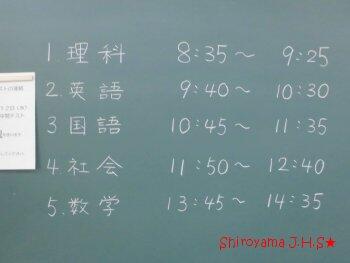 1. 理科 8:35〜 9:25
2. 英語 9:40〜 10:30
3 国語 10:45〜 11:35
4. 社会 11:50〜 12:40
5. 数学 13:45〜 14:35
Shiroyama J.H.S★